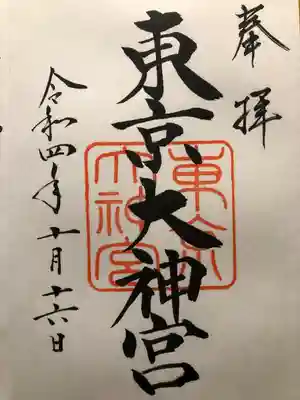 奉拝
東京大神宮
東京大神宮
令和四年十月十六日